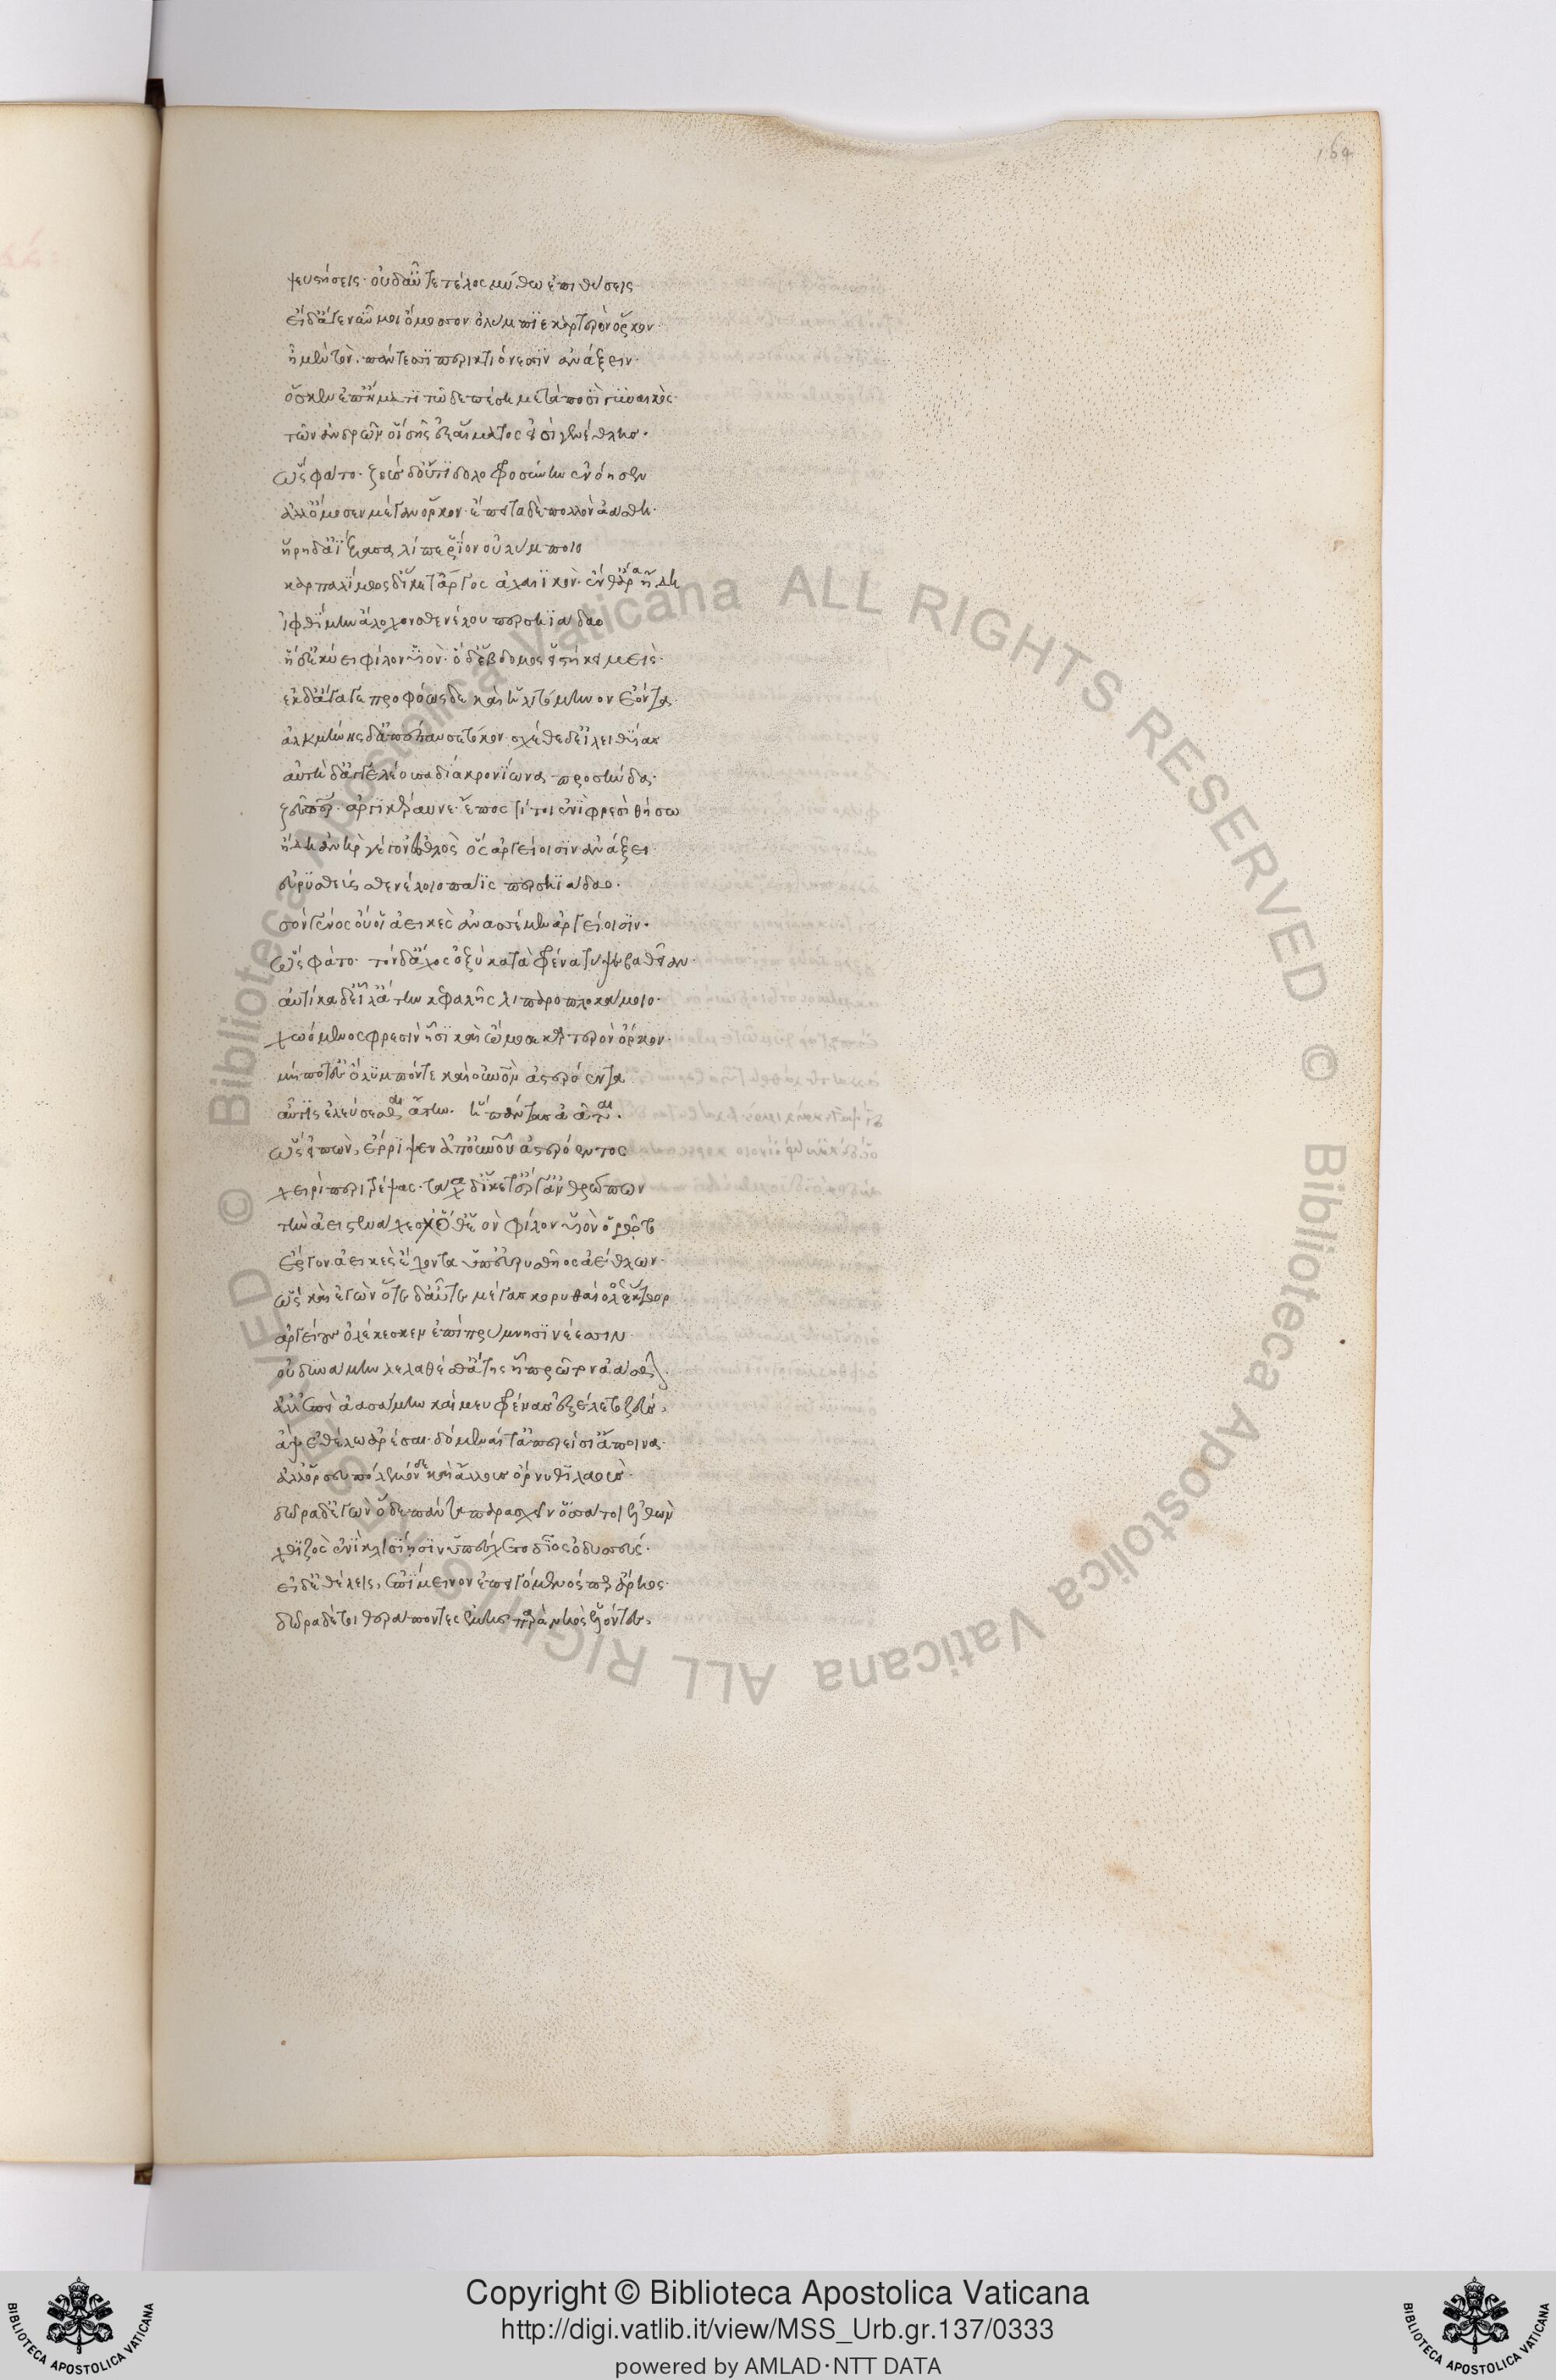 164
ψευστήσεις· οὐδ' αὖτε τέλος μύθω ἐπιθήσεις·
εἰ δ' ἄγε νῦν μοι ὄμοσσον ὀλύμπϊε καρτερὸν ὅρκον·
ἦ μὲν τὸν πάντεσσϊ περικτιόνεσσϊν ἀνάξειν·
ὅς κεν ἐπ' ἤματϊ τῶδε πέση μετὰ ποσσὶ γυναικὸς·
τῶν ἀνδρῶν οἳ σῆς ἐξ αἵματος εἰσὶ γενέθλης·
ὣς ἔφατο· ζεὺς δ' οὔτϊ δολοφροσύνην ἐνόησεν
ἀλλ' ὄμοσεν μέγαν ὅρκον· ἔπειτα δὲ πολλὸν ἀάσθη·
ἥρη δ' ἀΐξασα λίπε ῥΐον οὐλύμποιο
καρπαλΐμως δ' ἵκετ' ἄργος ἀχαιϊκὸν· ἔνθ' ἄρα ἤδη
ἰφθΐμην ἄλοχον σθενέλου περσηϊάδαο
ἣ δ' ἐκύει φίλον υἱὸν· ὁ δ' ἕβδομος εἱστήκει μεὶς·
ἐκ δ' ἄγαγε προφόωσδε καὶ ἠλιτόμηνον ἐόντα·
ἀλκμήνης δ' ἀπέπαυσε τόκον· σχέθε δ' εἰλειθυίας
αὐτὴ δ' ἀγγελέουσα δία κρονΐωνα προσηύδα·
ζεῦ πάτερ· ἀργϊκέραυνε· ἔπος τί τοι ἐνὶ φρεσὶ θήσω
ἤδη ἀνὴρ γέγον' ἐσθλὸς ὃς ἀργείοισϊν ἀνάξει
εὐρϋσθεὺς σθενέλοιο παῒς περσηϊάδαο·
σὸν γένος οὔ οἱ ἀεικὲς ἀνασσέμεν ἀργείοισϊν·
ὣς φάτο· τὸν δ' ἄχος ὀξὺ κατὰ φρένα τύψε βαθεῖαν·
αὐτίκα δ' εἷλ' ἄτην κεφαλῆς λιπαροπλοκάμοιο·
χωόμενος φρεσὶν ᾗσι καὶ ὤμοσε καρτερὸν ὅρκον·
μή ποτ' ἐς ὄλϋμπόν τε καὶ οὐρανὸν ἀστερόεντα
αὖτις ἐλεύσεσθαι ἄτην· ἣ πάντας ἀᾶται·
ὣς εἰπὼν, ἔρρϊψεν ἀπ' οὐρανοῦ ἀστερόεντος
χειρὶ περιτρέψας· τάχα δ' ἵκετο ἔργ' ἀνθρώπων
τὴν ἀεὶ στενάχεσχ' ὅθ' ἑὸν φίλον υἱὸν ὁρῶτο
ἔργον ἀεικὲς ἔχοντα ὑπ' εὐρυσθῆος ἀέθλων·
ὣς καὶ ἐγὼν ὅτε δ' αὖτε μέγας κορυθαίολος ἕκτωρ
ἀργείους ὀλέκεσκεν ἐπὶ πρυμνῆσϊ νέεσσιν·
οὐ δυνάμην λελαθέσθ' ἄτης ᾗ πρῶτον ἀάσθην·
ἀλλ' ἐπεὶ ἀασάμην καί μευ φρένας ἐξέλετο ζεύς,
ἂψ ἐθέλω ἀρέσαι· δόμεναί τ' ἀπερείσϊ' ἄποινα·
ἀλλ' ὄρσευ πόλεμόνδε καὶ ἄλλους ὄρνυθϊ λαοὺς·
δῶρα δ' ἐγὼν ὅδε πάντα παρασχεῖν ὅσσα τοι ἐλθὼν
χθϊζὸς ἐνὶ κλισϊῃσϊν ὑπέσχετο δῖος ὀδυσσεύς·
εἰ δ' ἐθέλεις, ἐπίμεινον ἐπειγόμενός περ ἄρηος·
δῶρα δέ τοι θεράποντες ἐμῆς παρὰ νηὸς ἑλόντες,
Copyright © Biblioteca Apostolica Vaticana
http://digi.vatlib.it/view/MSS_Urb.gr.137/0333
powered by AMLAD·NTT DATA